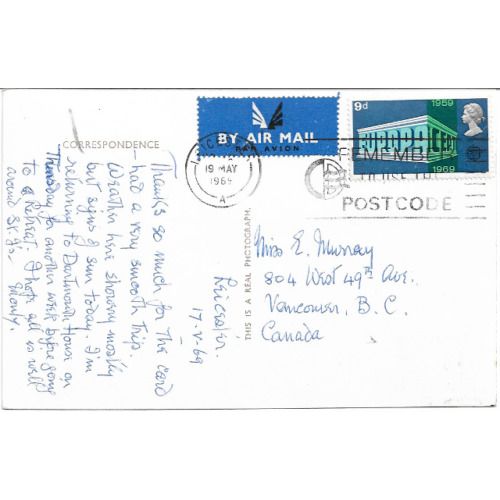 BY AIR MAIL
PAR AVION
9d
1959
1969
EUROPA CEPT
19 MAY
1969
A
REMEMBER
TO USE THE
POSTCODE
CORRESPONDENCE
THIS IS A REAL PHOTOGRAPH.
Leicester.
17-V-69
Thanks so much for the card
– had a very smooth trip.
Weather here showery mostly
but signs of sun today. I'm
returning to Dartmouth House on
Thursday for another week before going
to a Retreat. Hope all is well
round St. J's.
Miss E. Murray
804 West 49th Ave.
Vancouver, B.C.
Canada